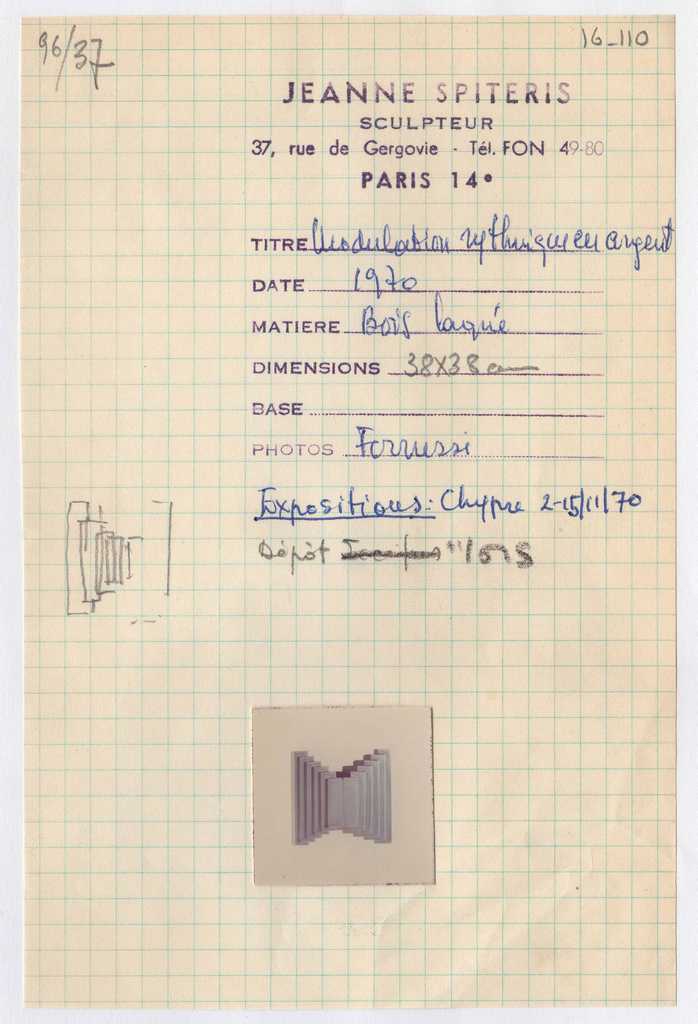 96/37
16_110
JEANNE SPITERIS
SCULPTEUR
37, rue de Gergovie - Tél. FON 49-80
PARIS 14e
TITRE Modulation rythmique en argent
DATE 1970
MATIERE Bois laqué
DIMENSIONS 38X38 cm
BASE
PHOTOS
Expositions: Chypre 2-15/11/70
Dépôt